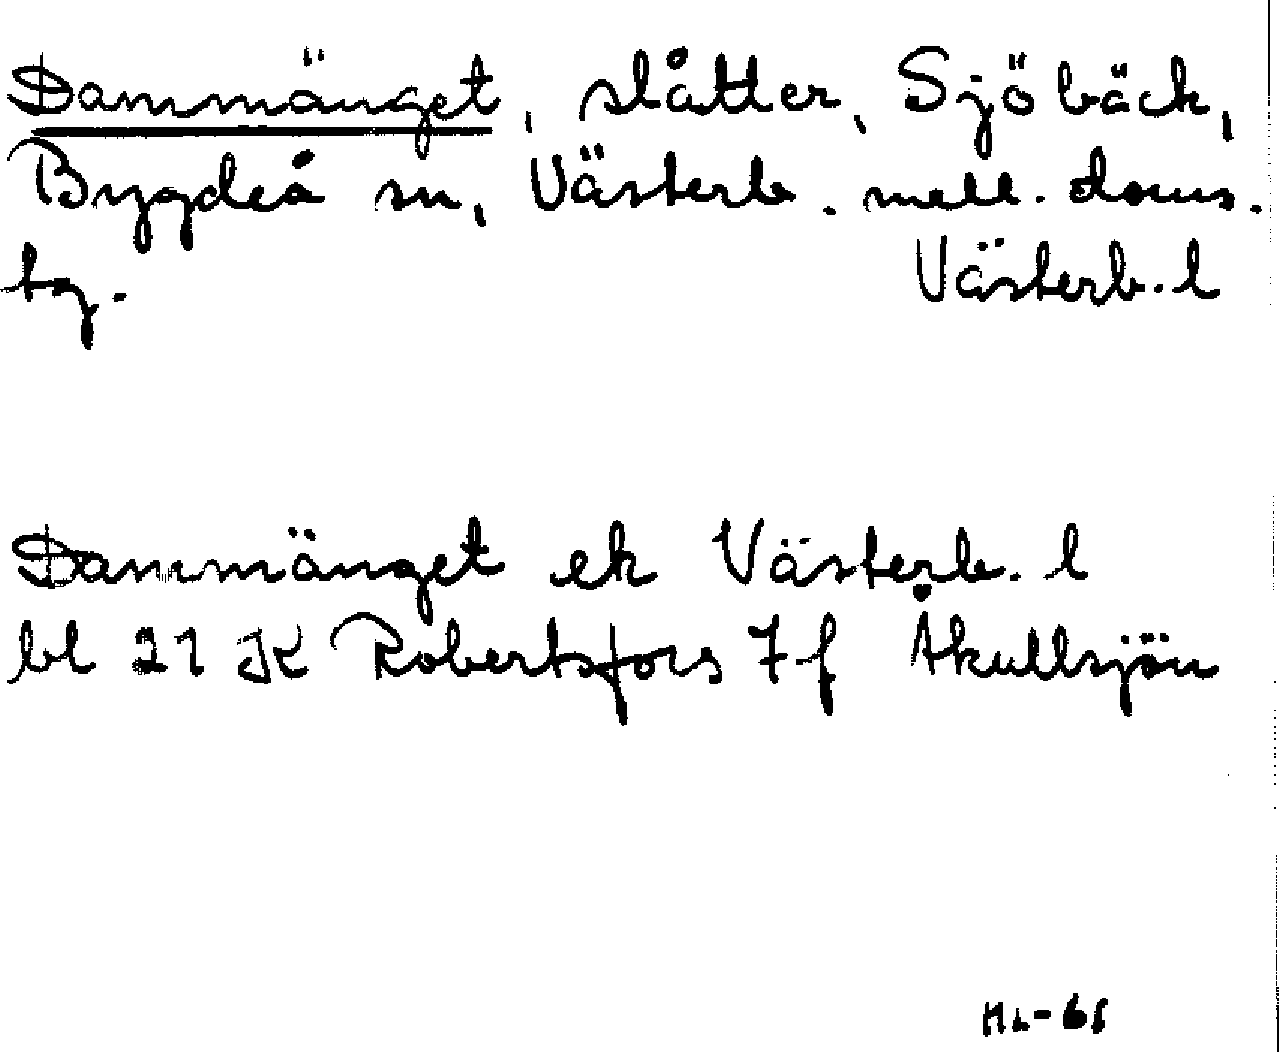 Dammänget, slåtter, Sjöbäck,
Bygdeå sn, Västerb. mell. doms.
tg. Västerb. l
Dammänget ek Västerb. l
bl 21 K Robertsfors 7 f Åkullsjön